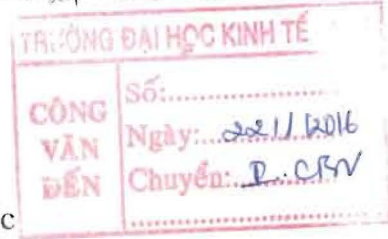 TRƯỜNG ĐẠI HỌC KINH TẾ
CÔNG VĂN ĐẾN
Số:....................
Ngày:...22/1/2016
Chuyển:...P.
c